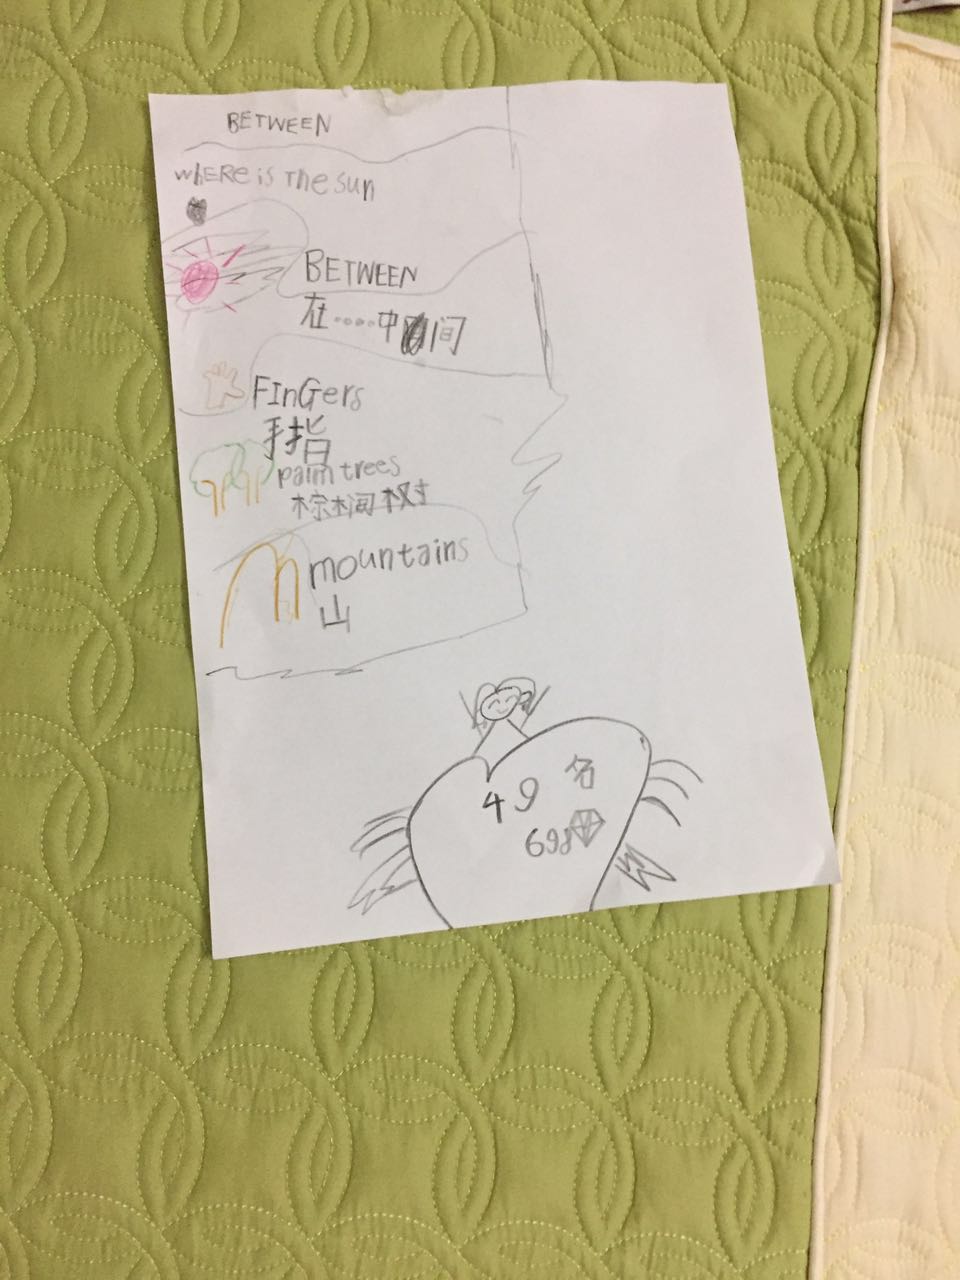 BETWEEN
whERe is The sun
BETWEEN
在....中间
FInGers
手指
palm trees
棕榈树
mountains
山
49名
698